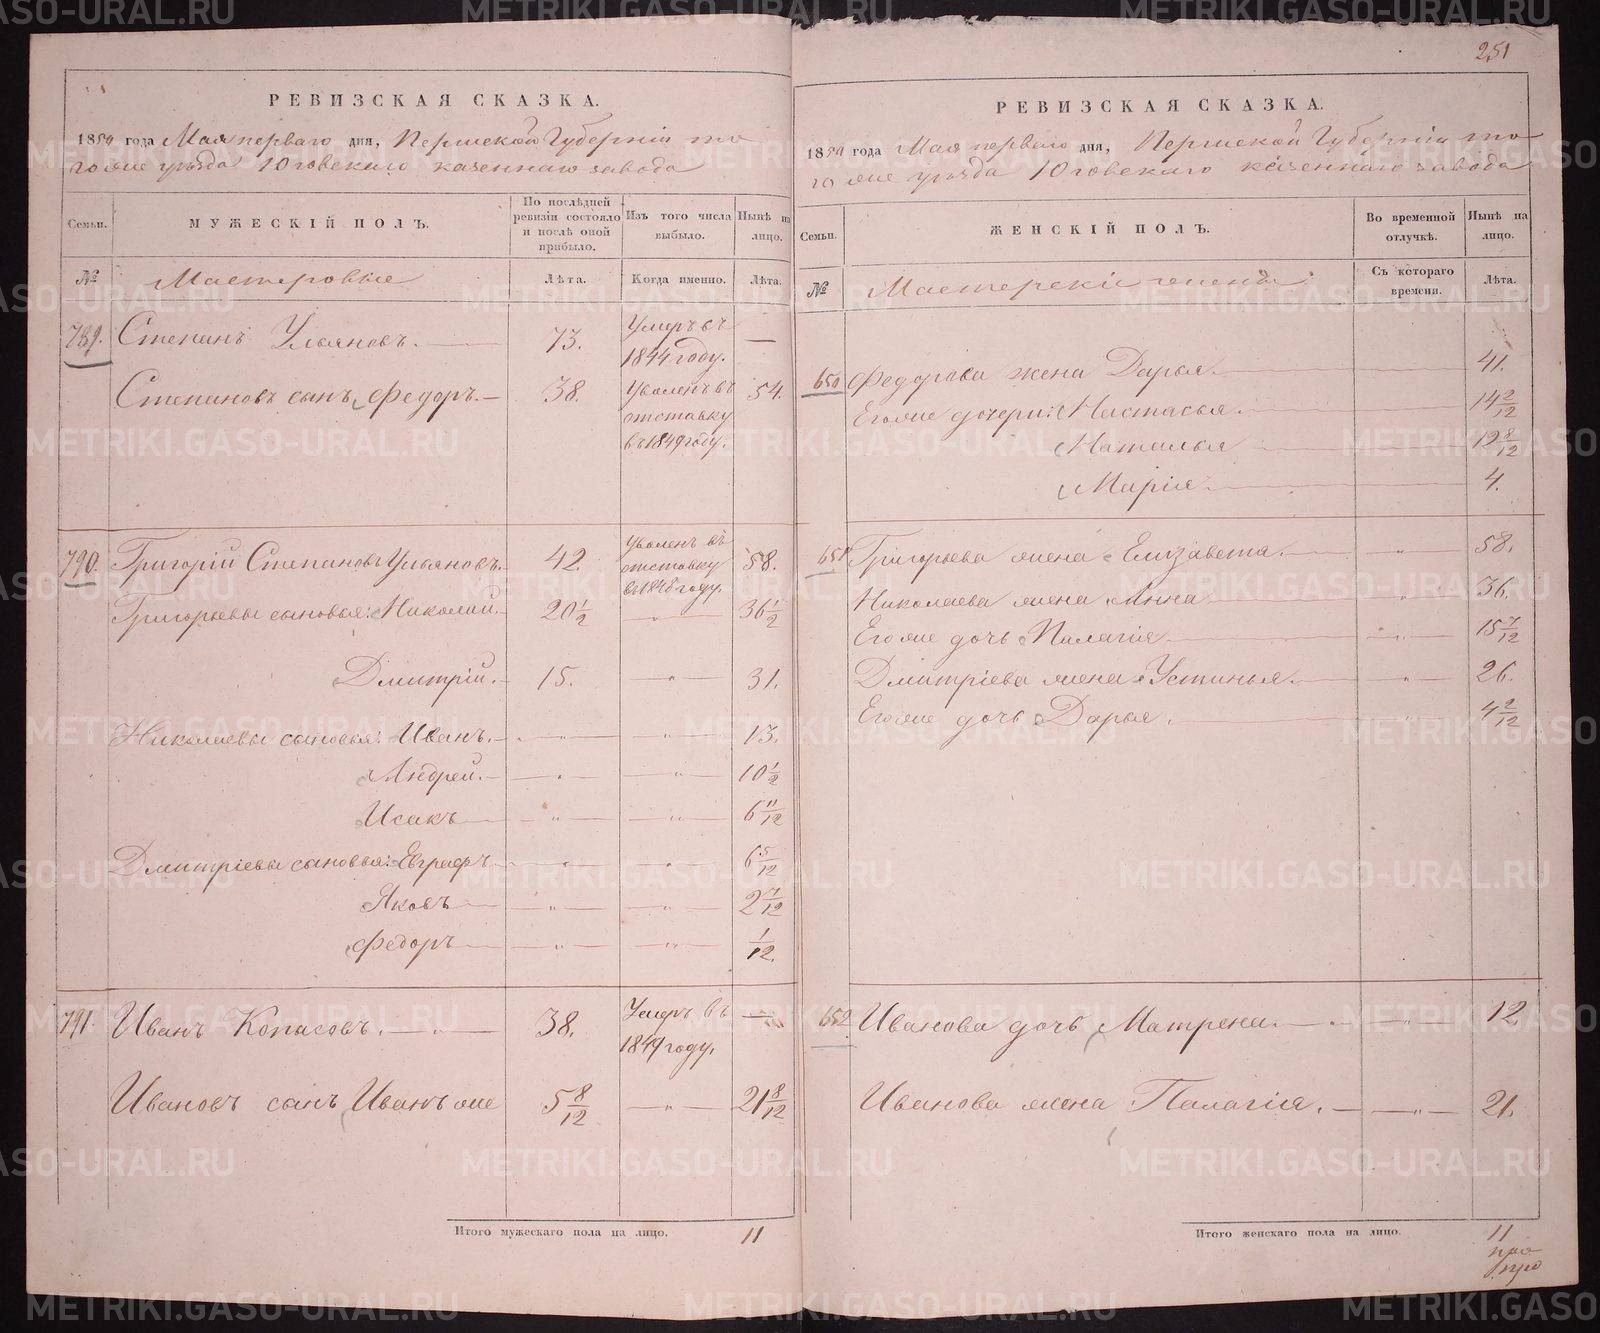 251
РЕВИЗСКАЯ СКАЗКА.
1850 года Мая перваго дня, Пермской Губерніи то
гоже уѣзда Юговскаго казеннаго завода
Семьи.
МУЖЕСКІЙ ПОЛЪ.
По послѣдней ревизіи состояло и послѣ оной прибыло.
Изъ того числа выбыло.
Нынѣ на лицо.
№
Мастеровые
Лѣта.
Когда именно.
Лѣта.
789. Степанъ Ульяновъ. 73. Умеръ въ 1844 году. —
Степановъ сынъ Федоръ. 38. Уволенъ въ отставку въ 1849 году. 54.
790. Григорій Степановъ Ульяновъ. 42. Уволенъ въ отставку въ 1848 году. 58.
Григорьевы сыновья: Николай. 20 1/2 — " — 36 1/2
Дмитрій. 15. — " — 31.
Николаевы сыновья: Иванъ. — " — — " — 13.
Андрей. — " — — " — 10 1/2
Исакъ — " — — " — 6 11/12
Дмитріевы сыновья: Евграфъ — " — — " — 6 5/12
Яковъ — " — — " — 2 7/12
Федоръ — " — — " — 1/12.
791. Иванъ Копасовъ. — " — 38. Умеръ въ 1849 году. —
Ивановъ сынъ Иванъ же 5 8/12 — " — 21 8/12
Итого мужескаго пола на лицо. 11
РЕВИЗСКАЯ СКАЗКА.
1850 года Мая перваго дня, Пермской Губерніи то
гоже уѣзда Юговскаго казеннаго завода
Семьи.
ЖЕНСКІЙ ПОЛЪ.
Во временной отлучкѣ.
Нынѣ на лицо.
№
Мастерскія жены
Съ котораго времени.
Лѣта.
650 Федорова жена Дарья. 41.
Его же дочери: Настасья. 14 2/12
Наталья 12 8/12
Марія. 4.
651 Григорьева жена Елизавета. — " — 58.
Николаева жена Анна — " — 36.
Его же дочь Палагія — " — 15 7/12
Дмитріева жена Устинья. — " — 26.
Его же дочь Дарья. — " — 4 2/12
652 Иванова дочь Матрена. — " — 12
Иванова жена Палагія. — " — 21.
Итого женскаго пола на лицо. 11
METRIKI.GASO-URAL.RU